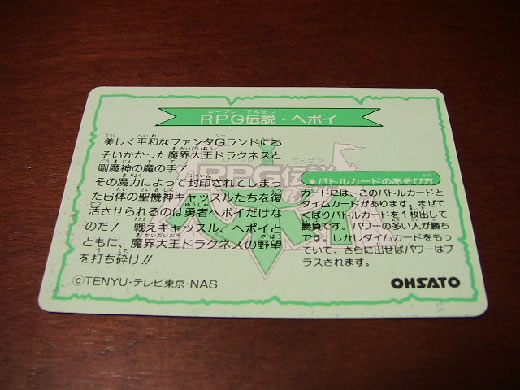 RPG伝説・ヘポイ
美しく平和なファンタGランドにお
そいかかった魔界大王ドラクネスと
剛魔神の魔の手!
その魔力によって封印されてしまっ
た6体の聖機神キャッスルたちを復
活させられるのは勇者ヘポイだけな
のだ! 戦えキャッスル、ヘポイと
ともに、魔界大王ドラクネスの野望
を打ち砕け!!
©TENYU・テレビ東京・NAS
●バトルカードのあそび方
カードには、このバトルカードと
タイムカードがあります。きせて
くばりバトルカードを1枚出して
勝負です。パワーの多い人が勝ち
です。しかしタイムカードをもっ
ていて、さらに出せばパワーはプ
ラスされます。
OHSATO